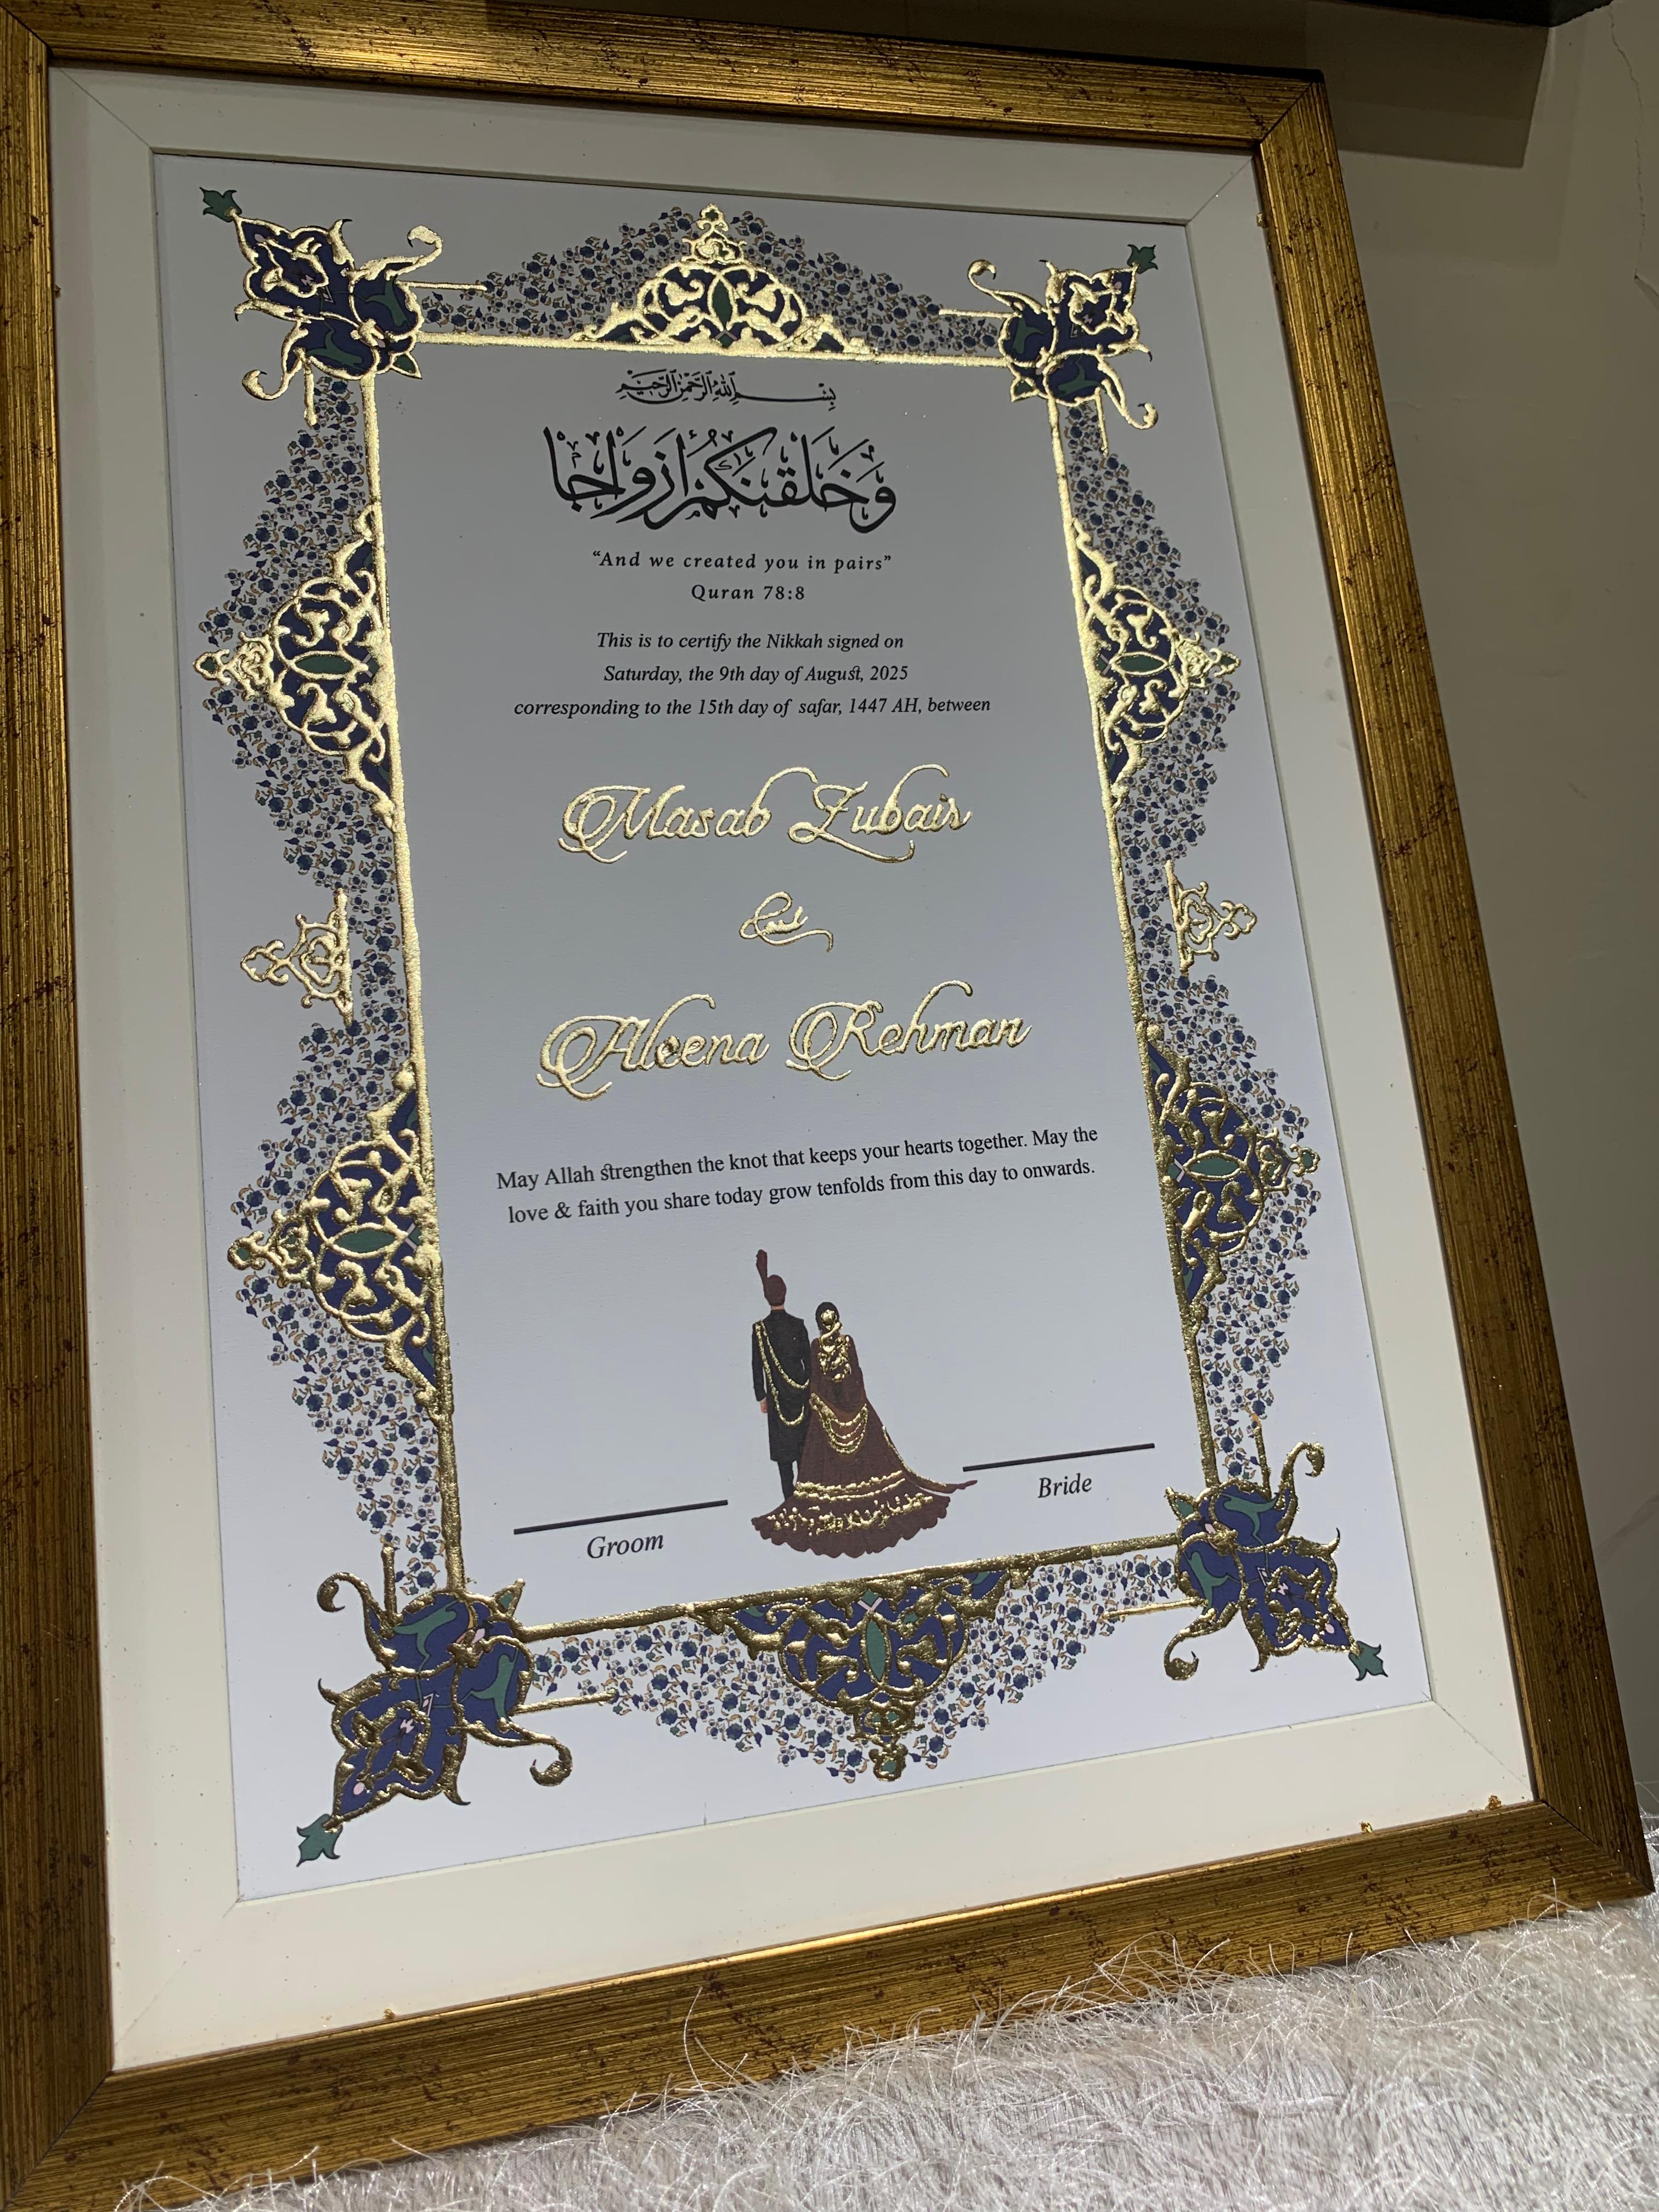 بِسْمِ اللهِ الرَّحْمٰنِ الرَّحِيْمِ
وَخَلَقْنَكُمْ أَزْوَاجًا
“And we created you in pairs”
Quran 78:8
This is to certify the Nikkah signed on
Saturday, the 9th day of August, 2025
corresponding to the 15th day of safar, 1447 AH, between
Masab Zubair
and
Aleena Rehman
May Allah strengthen the knot that keeps your hearts together. May the
love & faith you share today grow tenfolds from this day to onwards.
Bride
Groom